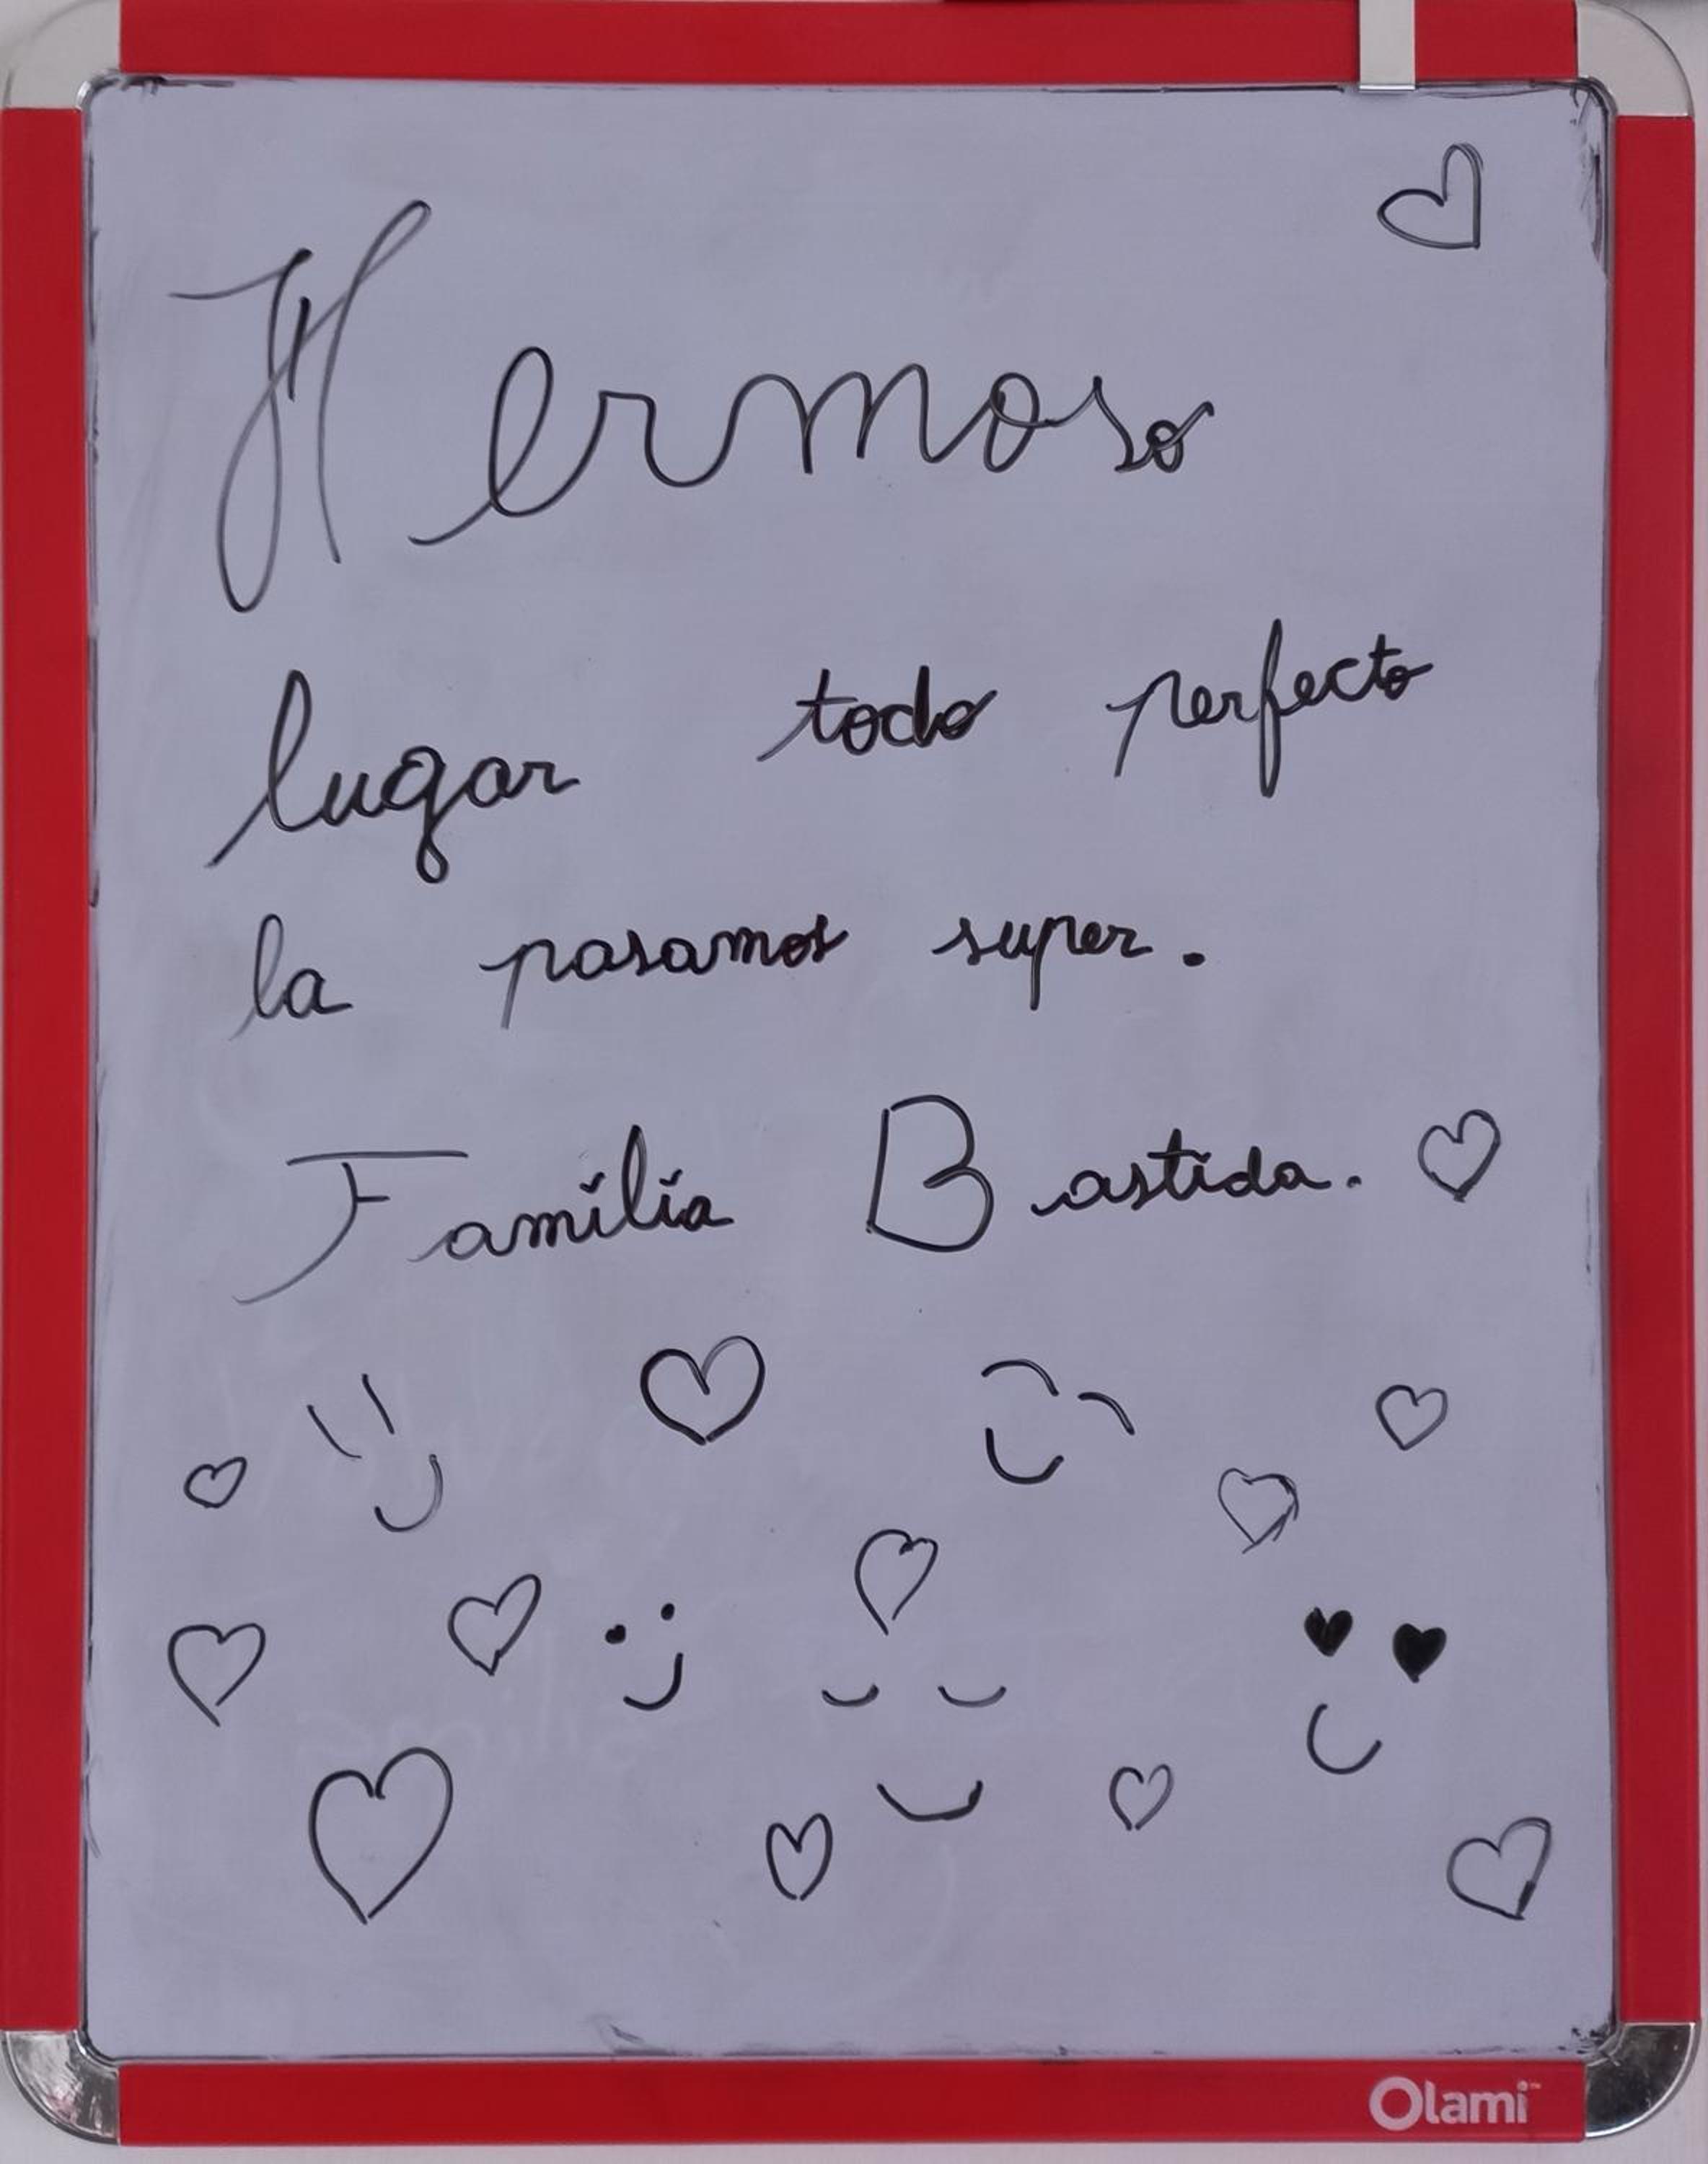 Hermoso
lugar todo perfecto
la pasamos super.
Familia Bastida.
Olami™